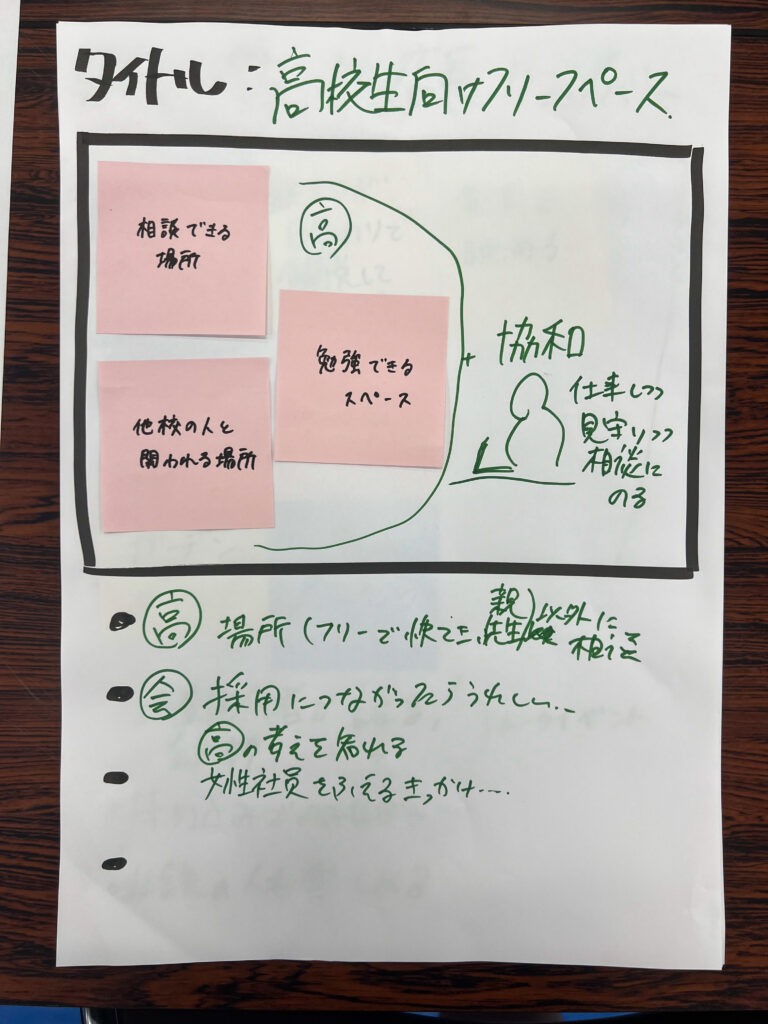 タイトル：高校生向けフリースペース.
相談できる
場所
高
勉強できる
スペース
他校の人と
関われる場所
協和
仕事しつつ
見守りつつ
相談に
のる
高 場所（フリーで快てき、親 先生 以外に 相談
会 採用につながったらうれしい...
高の考えを知れる
女性社員をふえるきっかけ....